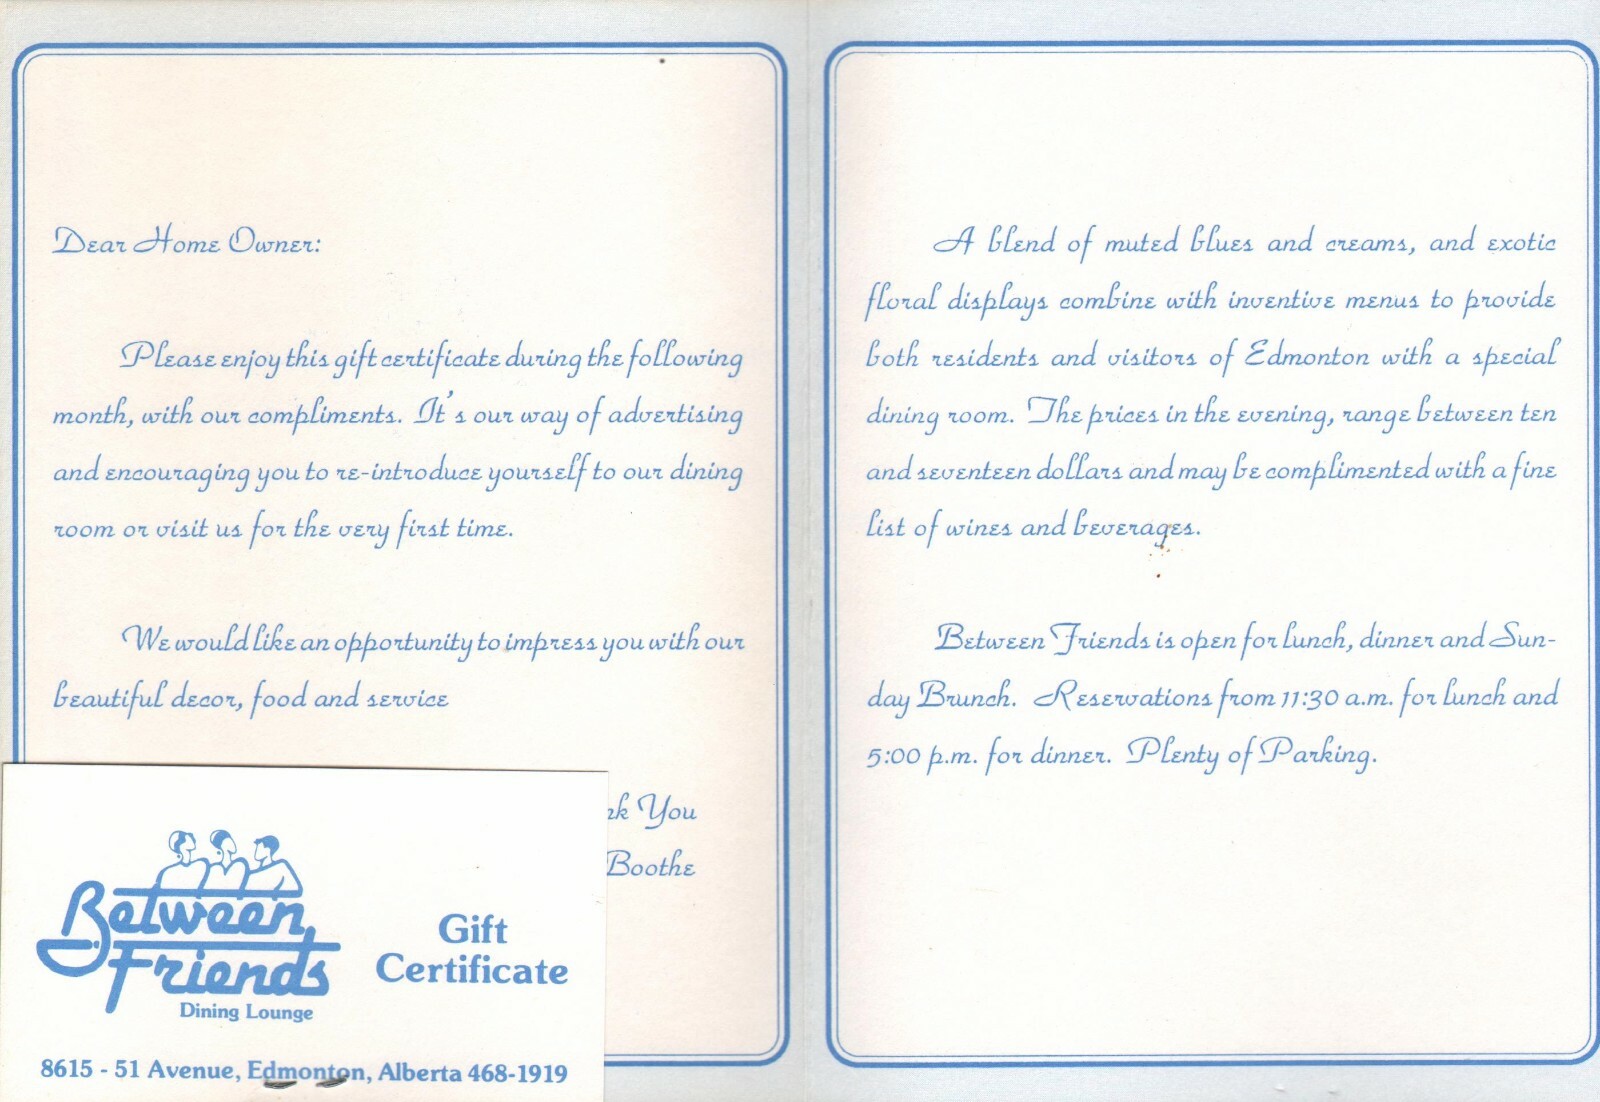 Dear Home Owner:
Please enjoy this gift certificate during the following
month, with our compliments. It's our way of advertising
and encouraging you to re-introduce yourself to our dining
room or visit us for the very first time.
We would like an opportunity to impress you with our
beautiful decor, food and service
You
Boothe
Between
Friends
Dining Lounge
Gift
Certificate
8615 - 51 Avenue, Edmonton, Alberta 468-1919
A blend of muted blues and creams, and exotic
floral displays combine with inventive menus to provide
both residents and visitors of Edmonton with a special
dining room. The prices in the evening, range between ten
and seventeen dollars and may be complimented with a fine
list of wines and beverages.
Between Friends is open for lunch, dinner and Sun-
day Brunch. Reservations from 11:30 a.m. for lunch and
5:00 p.m. for dinner. Plenty of Parking.